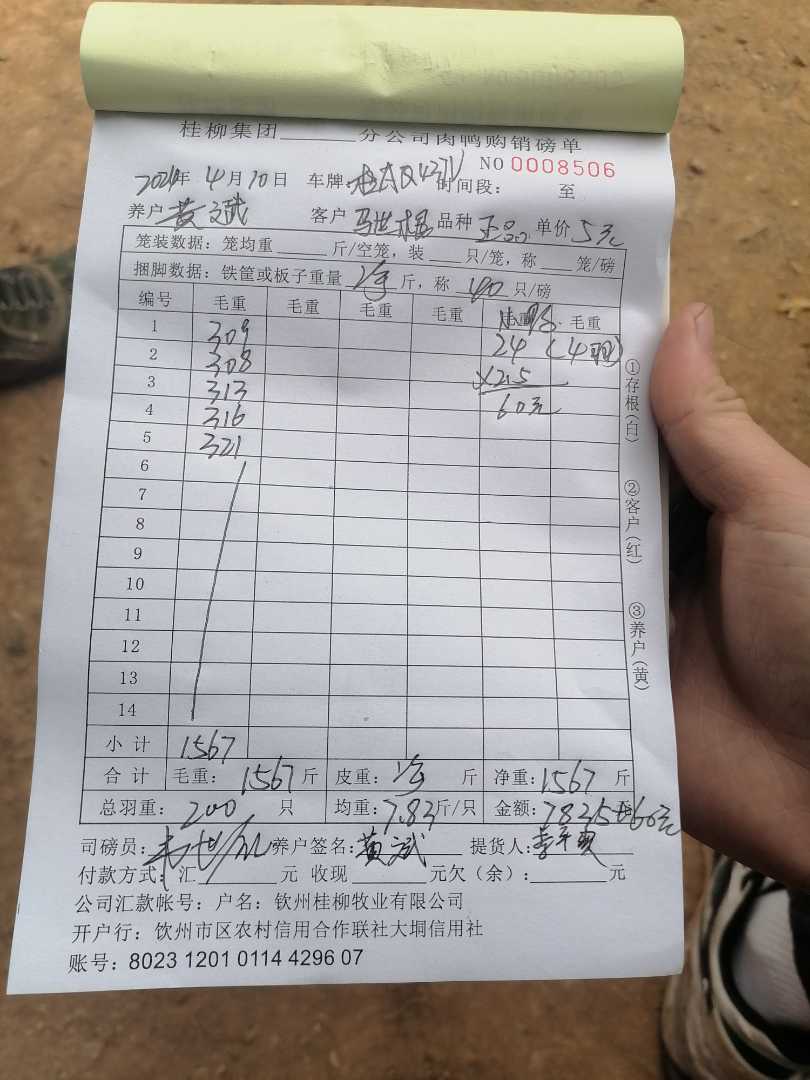 桂柳集团______分公司肉鸭购销磅单
NO 0008506
2024年 4月10日 车牌: 时间段: 至
养户 黄斌 客户 马世 品种 正品 单价 5元
笼装数据：笼均重____斤/空笼，装____只/笼，称____笼/磅
捆脚数据：铁筐或板子重量 净 斤，称 40 只/磅
编号 毛重 毛重 毛重 毛重 毛重 毛重
1 309 24 (4羽)
2 308 ×2.5
3 313 60元
4 316
5 321
6
7
8
9
10
11
12
13
14
小计 1567
合计 毛重： 1567 斤 皮重： 净 斤 净重：1567 斤
总羽重： 200 只 均重：7.83斤/只 金额：7835+60元
司磅员： 养户签名：黄斌 提货人：
付款方式：汇______元 收现______元欠（余）：______元
公司汇款帐号：户名：钦州桂柳牧业有限公司
开户行：钦州市区农村信用合作联社大垌信用社
账号：8023 1201 0114 4296 07
①存根(白)
②客户(红)
③养户(黄)